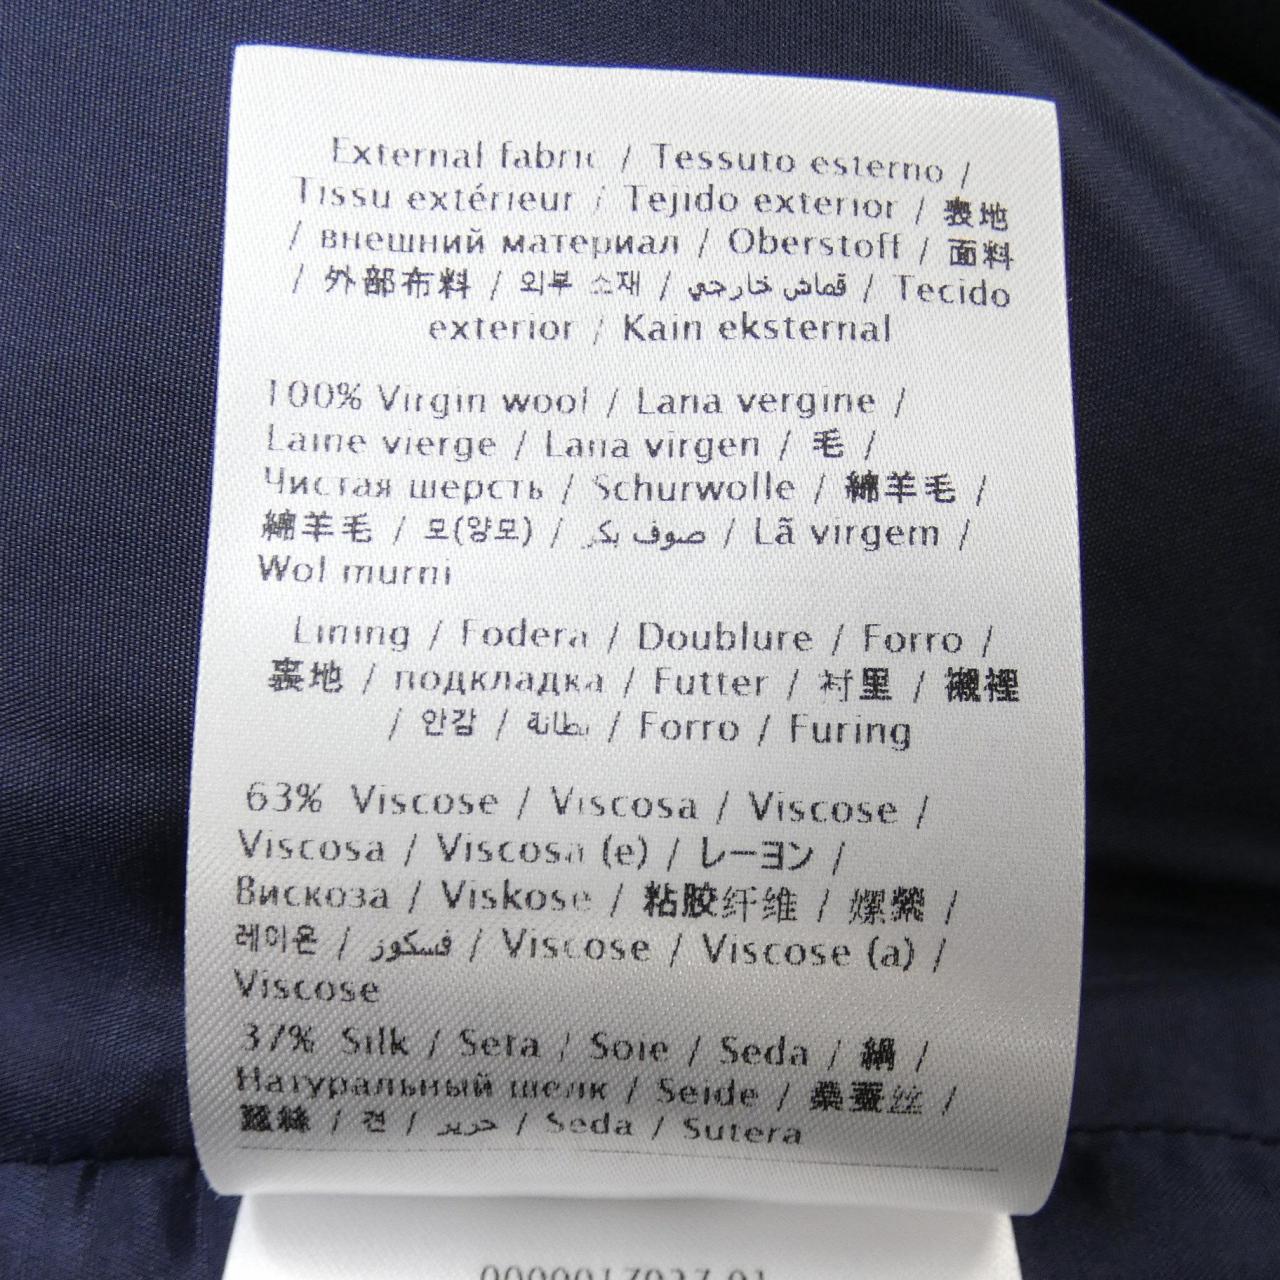 External fabric / Tessuto esterno /
Tissu extérieur / Tejido exterior / 表地
/ внешний материал / Oberstoff / 面料
/ 外部布料 / 외부 소재 / قماش خارجي / Tecido
exterior / Kain eksternal
100% Virgin wool / Lana vergine /
Laine vierge / Lana virgen / 毛 /
Чистая шерсть / Schurwolle / 綿羊毛 /
綿羊毛 / 모(양모) / صوف بكر / Lã virgem /
Wol murni
Lining / Fodera / Doublure / Forro /
裏地 / подкладка / Futter / 衬里 / 襯裡
/ 안감 / بطانة / Forro / Furing
63% Viscose / Viscosa / Viscose /
Viscosa / Viscosa (e) / レーヨン /
Вискоза / Viskose / 粘胶纤维 / 嫘縈 /
레이온 / فسكوز / Viscose / Viscose (a) /
Viscose
37% Silk / Seta / Soie / Seda / 絹 /
Натуральный шелк / Seide / 桑蚕丝 /
蠶絲 / 견 / حرير / Seda / Sutera